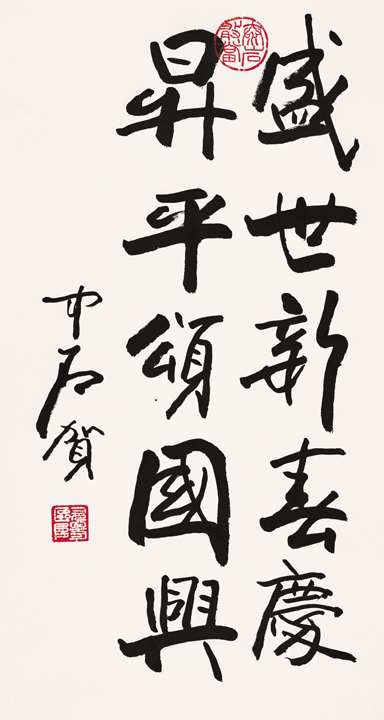 盛世新春慶
昇平頌國興
中石賀